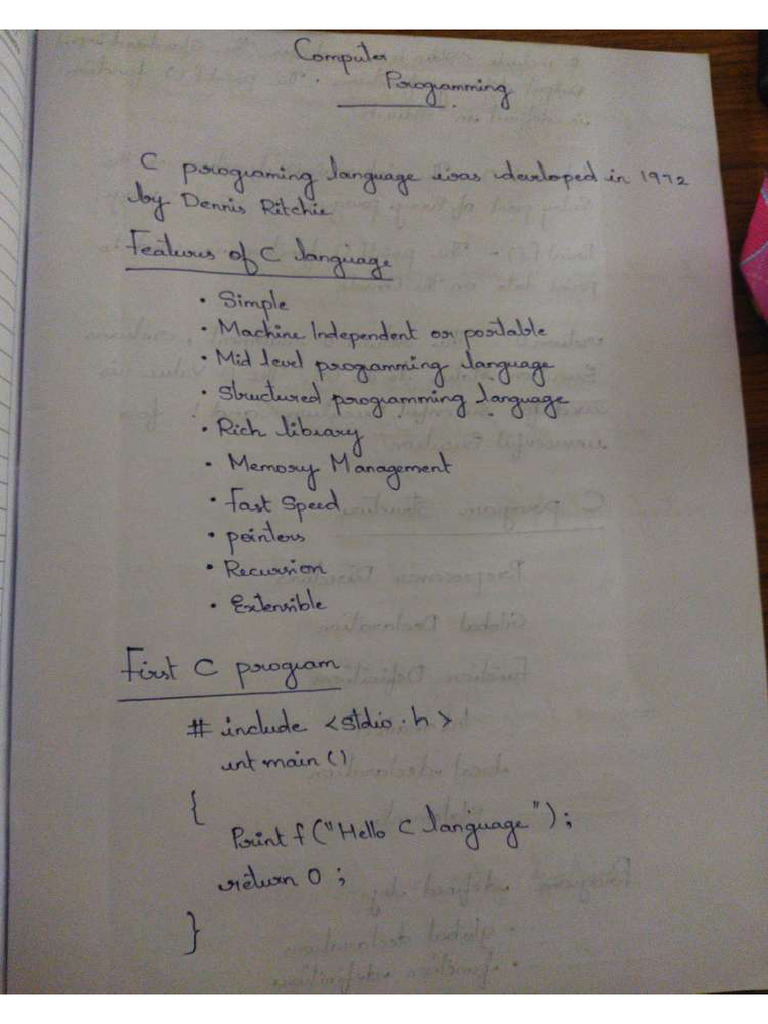 Computer
Programming
C programing language was developed in 1972
by Dennis Ritchie
Features of C language
• Simple
• Machine Independent or portable
• Mid level programming language
• Structured programming language
• Rich library
• Memory Management
• Fast Speed
• pointers
• Recursion
• Extensible
First C program
# include <stdio.h>
int main ()
{
Printf ("Hello C language");
return 0 ;
}